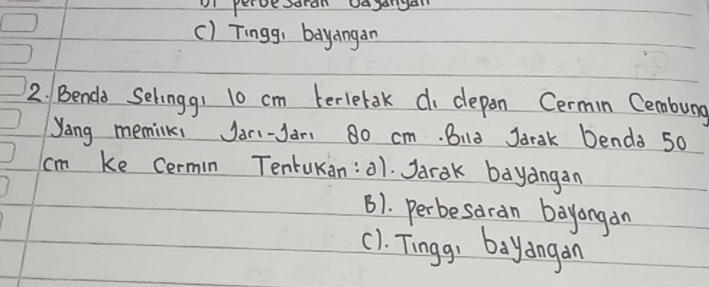 B) perbesaran bayangan
C) Tinggi bayangan
2. Benda Setinggi 10 cm terletak di depan Cermin Cembung
Yang memiliki Jari-Jari 80 cm. Bila Jarak benda 50
cm ke Cermin Tentukan: a). Jarak bayangan
B). perbesaran bayangan
C). Tinggi bayangan